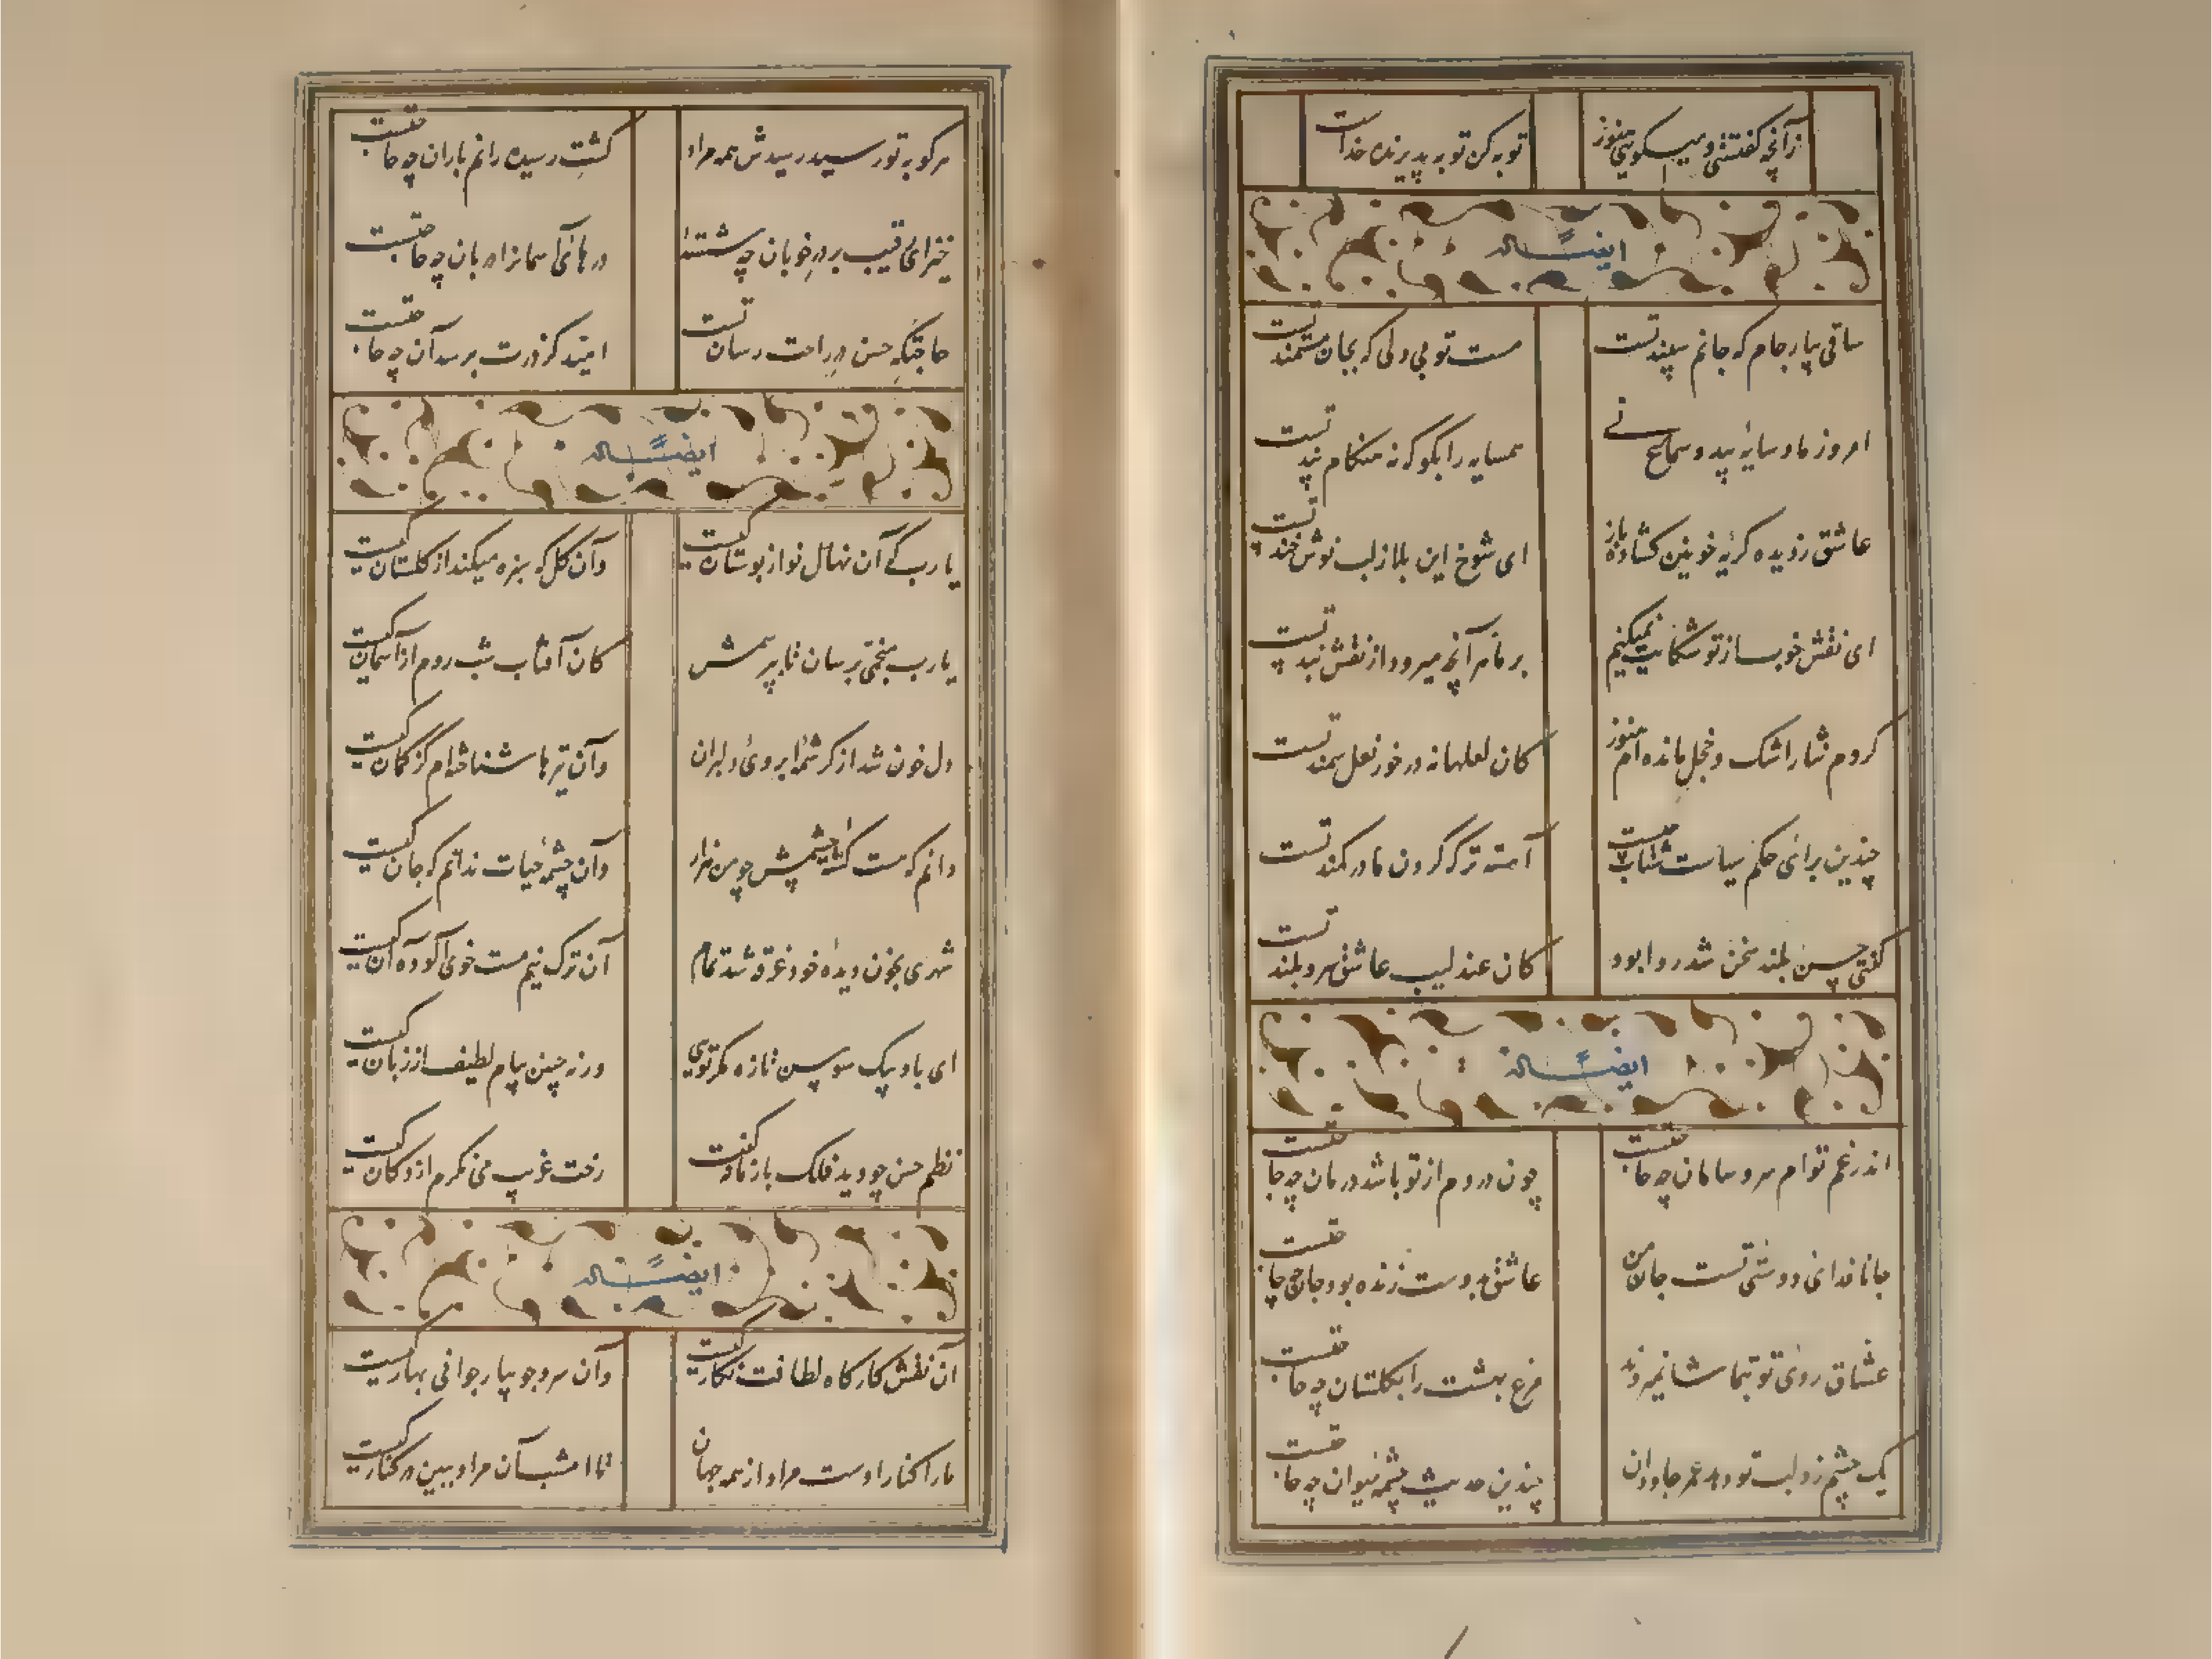 زآنچه گفتنی و میگویی هنوز
توبه کن توبه پذیرنده خداست
ایضاً له
ساقی بیار جام که جانم سپند تست
مست تو بی دلی که بجان مستمند تست
امروز ما و سایهٔ بید و سماع نی
همسایه را بگو که نه هنگام پند تست
عاشق ز دیده گریه خونین گشاده باز
ای شوخ این بلا ز لب نوش خند تست
ای نقش خوب از تو شکایت نمیکنیم
بر ما هر آنچه میرود از نقش بند تست
کردم نثار اشک و خجل مانده ام هنوز
کان لعلها نه در خور نعل سمند تست
چندین برای حکم سیاست شتاب چیست
آهسته ترک گردن ما در کمند تست
گفتی حسن بلند سخن شد روا بود
کان عندلیب عاشق سرو بلند تست
ایضاً له
اندر غم توام سر و سامان چه حاجتست
چون دردم از تو باشد درمان چه حاجتست
جانا فدای دوستی تست جان من
عاشق بدوست زنده بود جان چه حاجتست
عشاق روی تو بتماشا نمیروند
مرغ بهشت را بگلستان چه حاجتست
یک چشم زد لبت تو دهد عمر جاودان
چندین حدیث چشمه حیوان چه حاجتست
هر کو به تو رسید رسیدش همه مراد
کشت رسیده را نم باران چه حاجتست
خیز ای رقیب بر در خوبان چه شسته
درهای آسمان را دربان چه حاجتست
حاجتگه حسن در راحت رسان تست
امید کز درت برسد آن چه حاجتست
ایضاً له
یا رب که آن نهال نو از بوستان کیست
وآن گل که سبزه میکند از گلستان کیست
یا رب منجمی برسان تا بپرسمش
کان آفتاب شب روم از آسمان کیست
دل خون شد از کرشمهٔ ابروی دلبران
وآن تیرها شناخته ام کز کمان کیست
دانم که هست کشتهٔ چشمش چو من هزار
وآن چشمهٔ حیات ندانم که جان کیست
شهری بخون دیدهٔ خود غرقه شد تمام
آن ترک نیم مست خوی آلوده آن کیست
ای باد پیک سوسن تازه مگر توی
ورنه چنین پیام لطیف از زبان کیست
نظم حسن چو دید فلک باز ماند و گفت
رخت غریب می نگرم از دکان کیست
ایضاً له
آن نقش کارگاه لطافت نگار کیست
وآن سرو جویبار جوانی بهار کیست
ما را کنار اوست مراد از همه جهان
تا امشب آن مراد ببین در کنار کیست